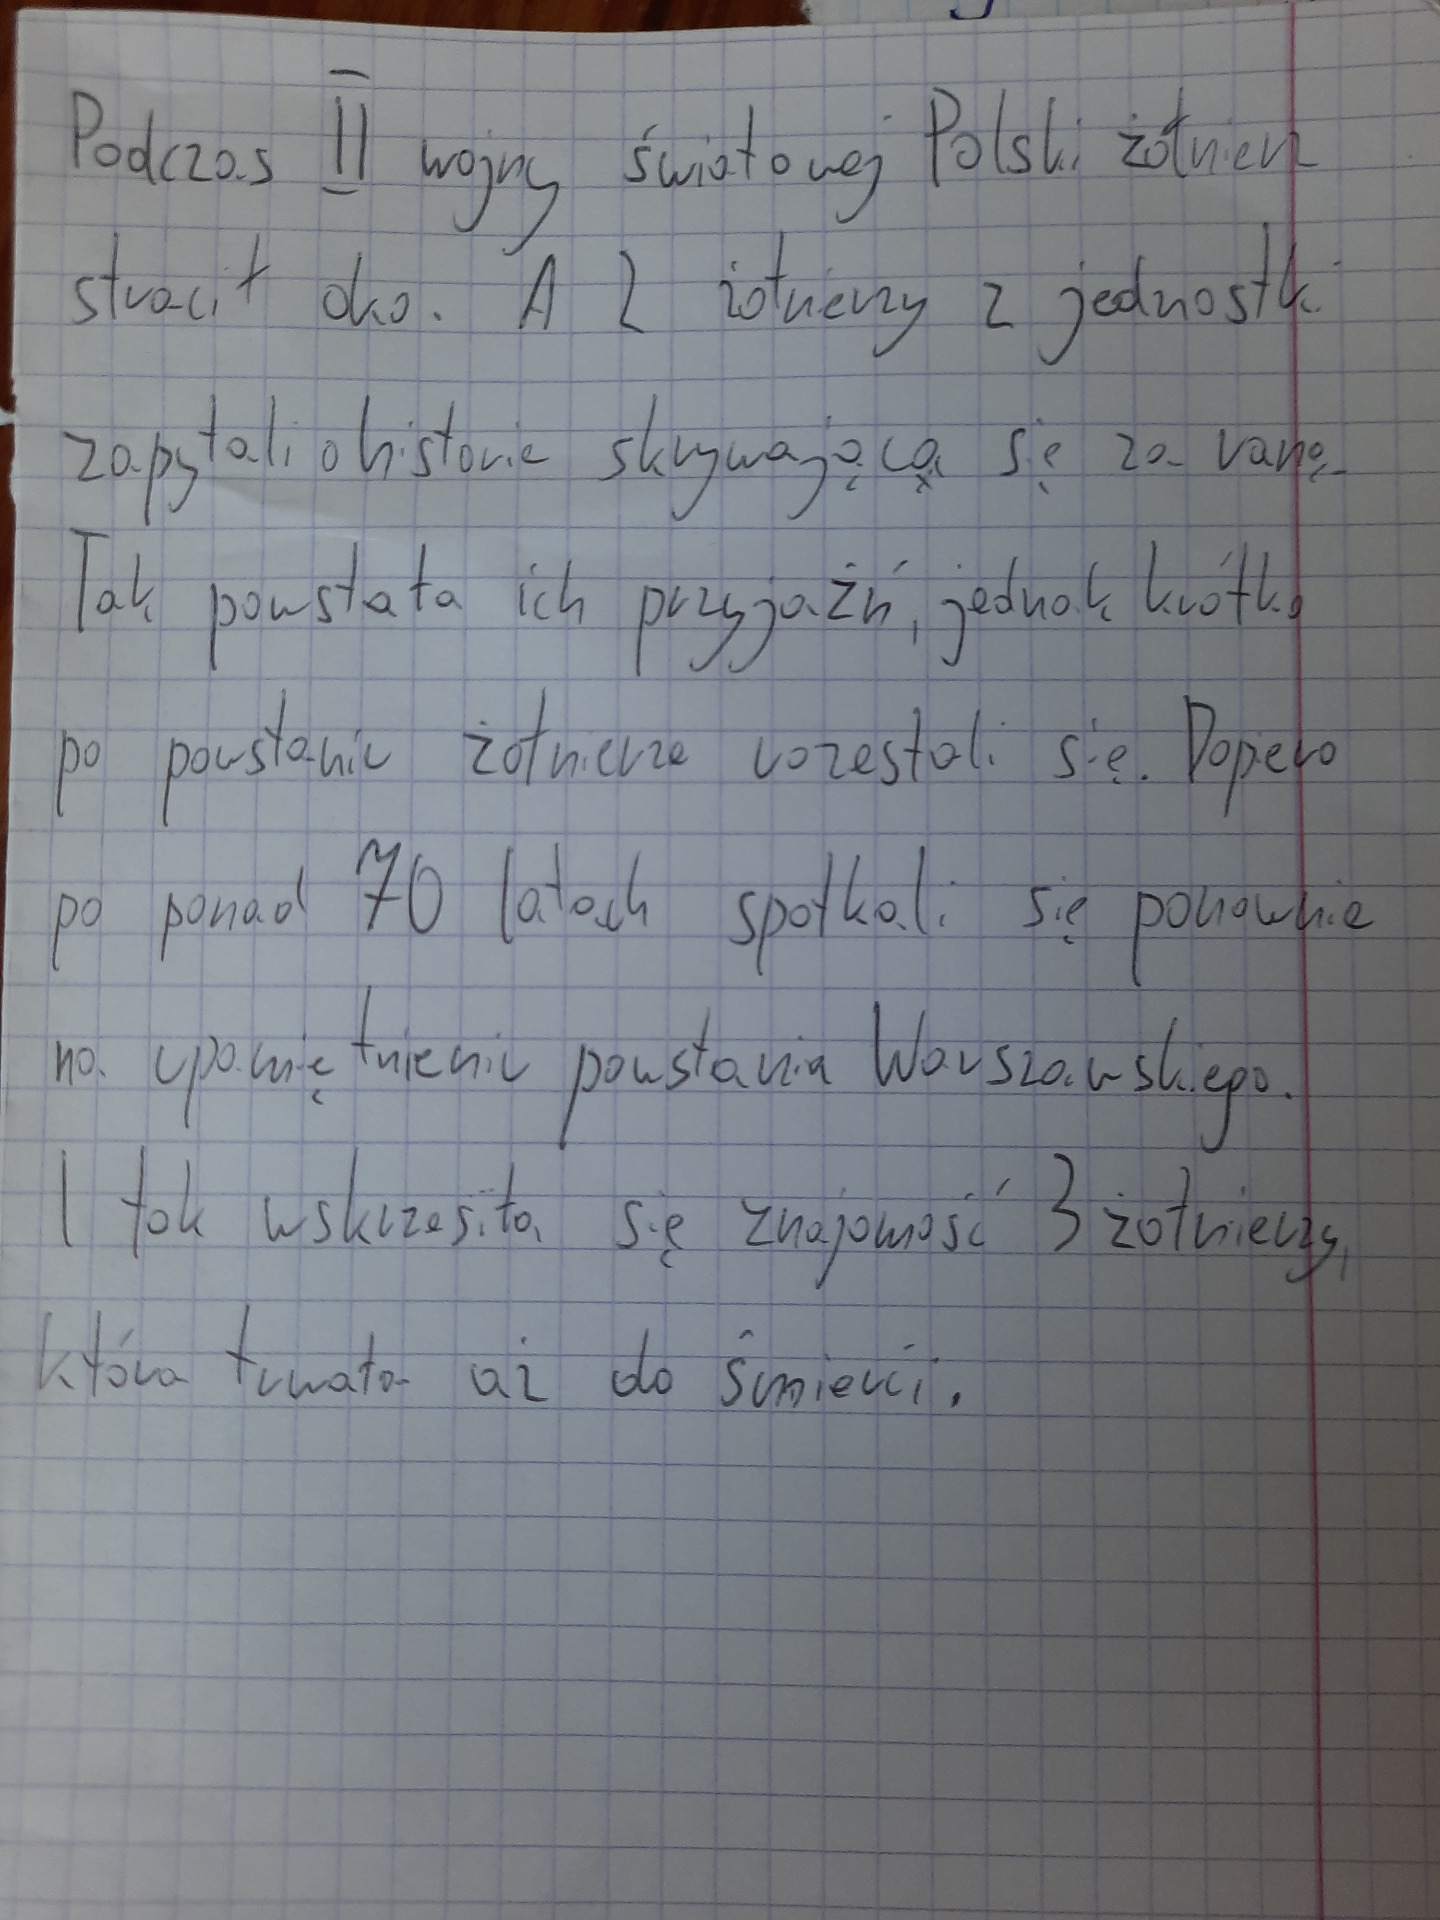 Podczas II wojny światowej Polski żołnierz
stracił oko. A 2 żołnierzy z jednostki
zapytali o historie skrywającą się za raną
Tak powstała ich przyjaźń, jednak krótko
po powstaniu żołnierze rozestali się. Dopiero
po ponad 70 latach spotkali się ponownie
na upamiętnieniu powstania Warszawskiego.
I tak wskrzesiła się znajomość 3 żołnierzy,
która trwała aż do śmierci.